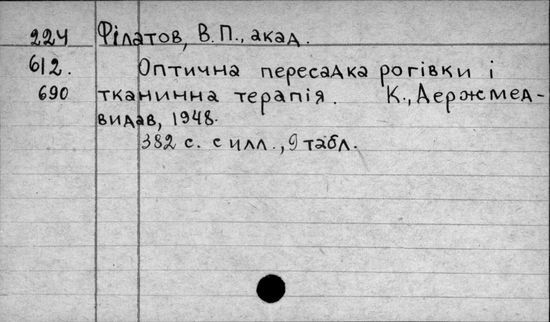 224 Філатов, В.П., акад.
612. Оптична пересадка рогівки і
690 тканинна терапія. К., Держмед-
видав, 1948.
382 с. с илл., 9 табл.